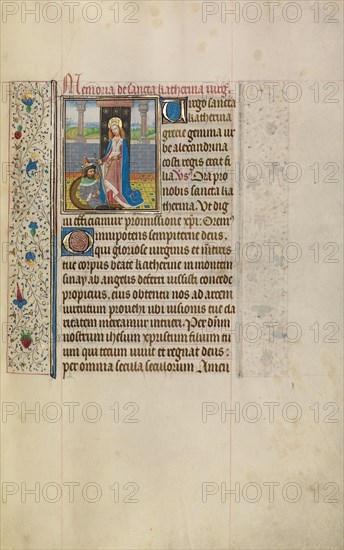 Memoria de sancta katherina virg.
Virgo sancta
katherina
grecie gemma ur
be alexandrina
costi regis erat fi
lia Vs Ora pro
nobis sancta ka
therina Ut dig
ni efficiamur promissione xpi Orem
Omnipotens sempiterne deus
qui gloriose virginis et martiris
tue corpus beate katherine in montem
sinay ab angelis deferri iussisti concede
propicius, eius obtentu nos ad arcem
virtutum provehi ubi visionis tue cla
ritatem mereamur intueri Per dominum
nostrum ihesum xpristum filium tu
um qui tecum vivit et regnat deus
per omnia secula seculorum Amen
PHOTO 12